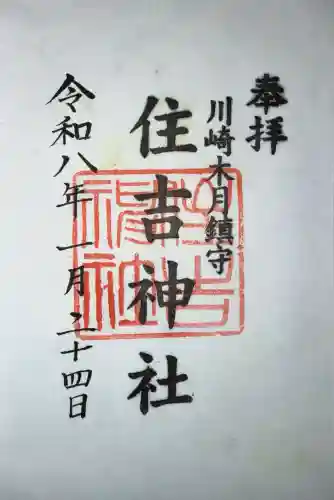 奉拝
川崎木月鎮守
住吉神社
令和八年 一月二十四日
住吉神社